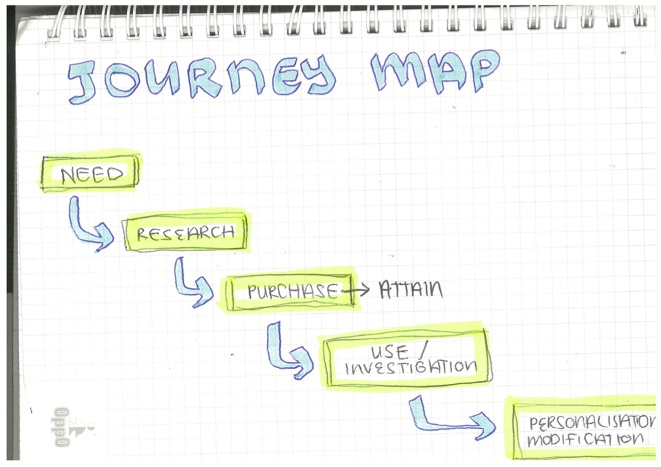 JOURNEY MAP
NEED
RESEARCH
PURCHASE → ATTAIN
USE /
INVESTIGATION
PERSONALISATION
MODIFICATION
oppo